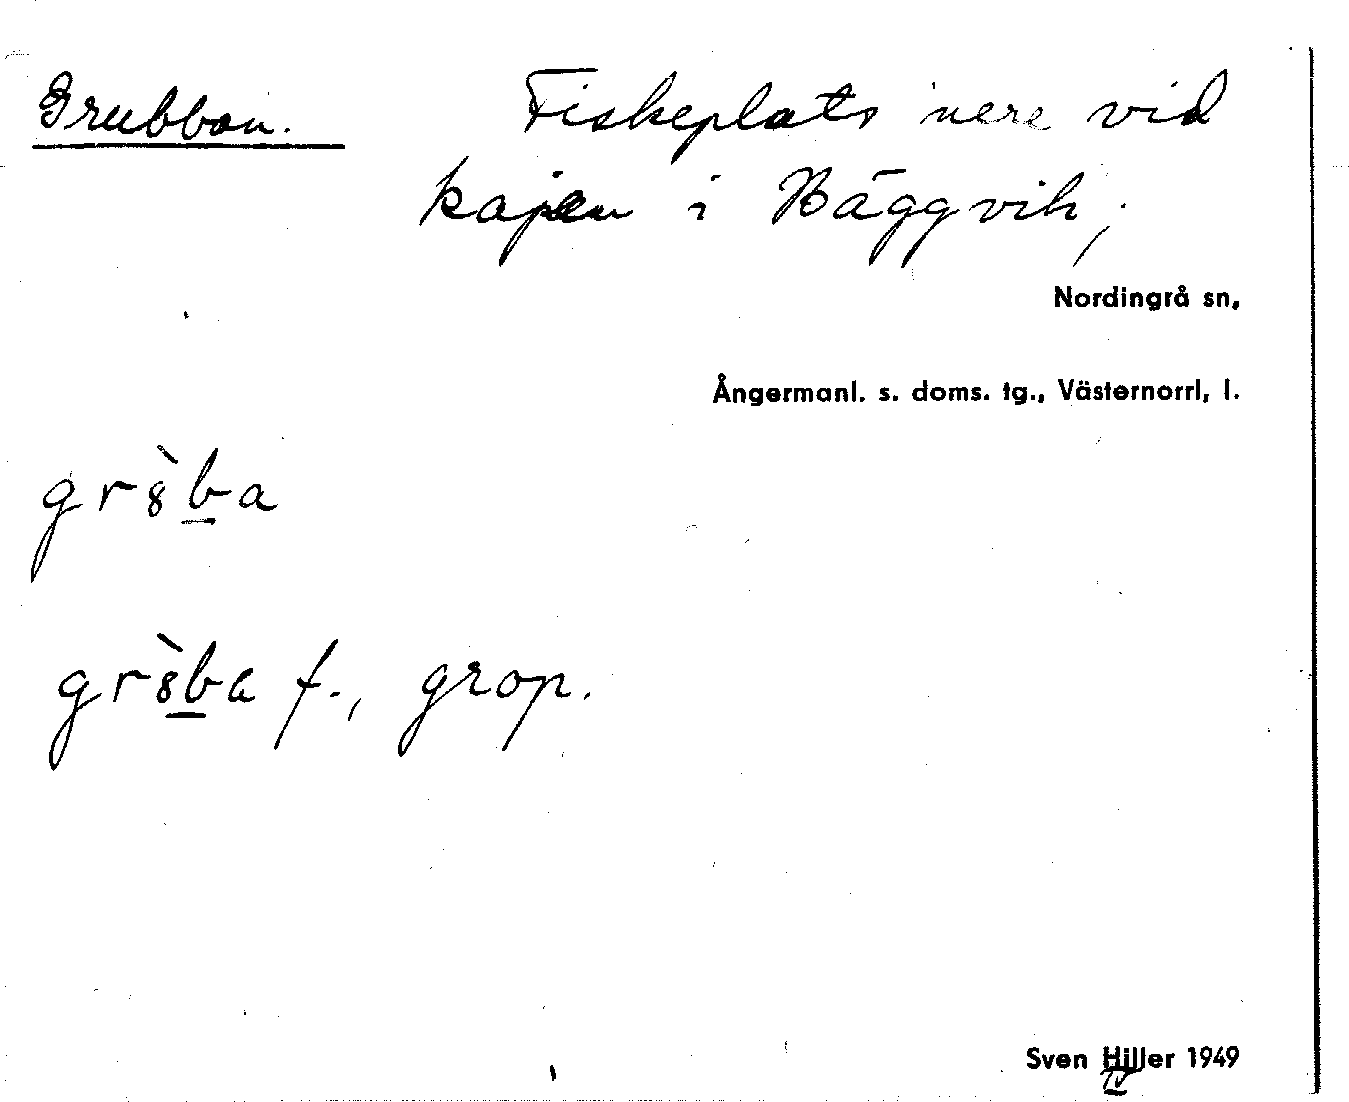 Grubban. Fiskeplats nere vid
kajen i Häggvik;
Nordingrå sn,
Ångermanl. s. doms. tg., Västernorrl, l.
gr8̀b̲a
gr8̀b̲a f., grop.
Sven Hiller 1949
IV